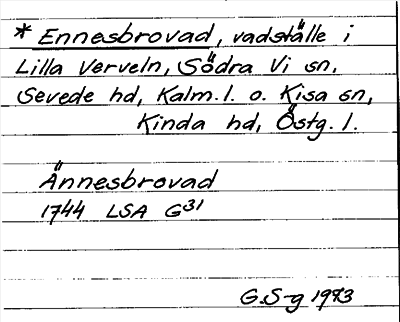 * Ennesbrovad, vadställe i
Lilla Verveln, Södra Vi sn,
Sevede hd, Kalm. l. o. Kisa sn,
Kinda hd, Östg. l.
Ännesbrovad
1744 LSA G31
G.S-g 1973